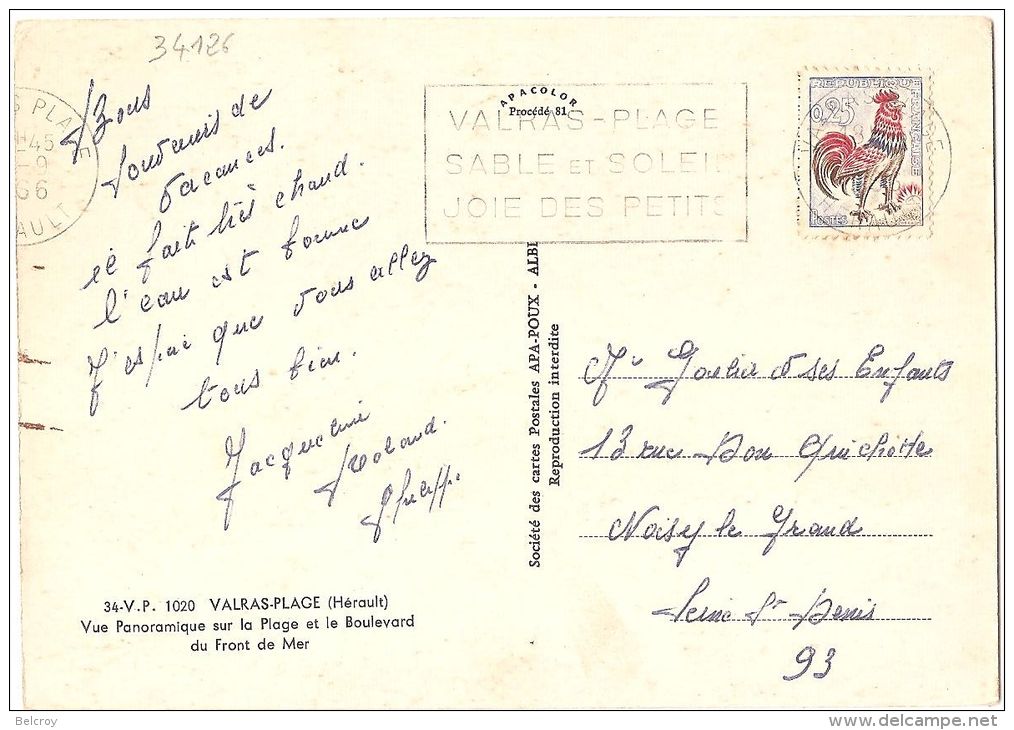 34126
Bons
souvenirs de
vacances.
il fait très chaud.
l'eau est bonne
J'espère que vous allez
tous bien.
Jacqueline
Roland.
Philippe
34-V.P. 1020 VALRAS-PLAGE (Hérault)
Vue Panoramique sur la Plage et le Boulevard
du Front de Mer
S PLAGE
-45
-9
66
AULT
APACOLOR
Procédé 81
VALRAS-PLAGE
SABLE ET SOLEIL
JOIE DES PETITS
REPUBLIQUE FRANÇAISE
0,25
POSTES
Société des cartes Postales APA-POUX - ALBI
Reproduction interdite
et ses Enfants
13 rue Don Quichotte
Noisy le Grand
Seine St Denis
93
Belcroy
delcampe.net